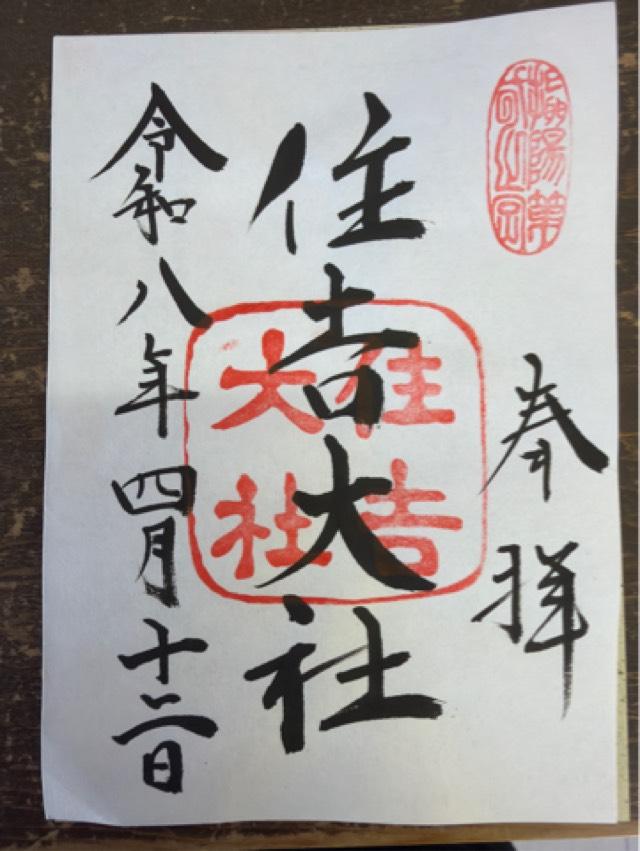 奉拝
住吉大社
住吉
大社
令和八年四月十二日